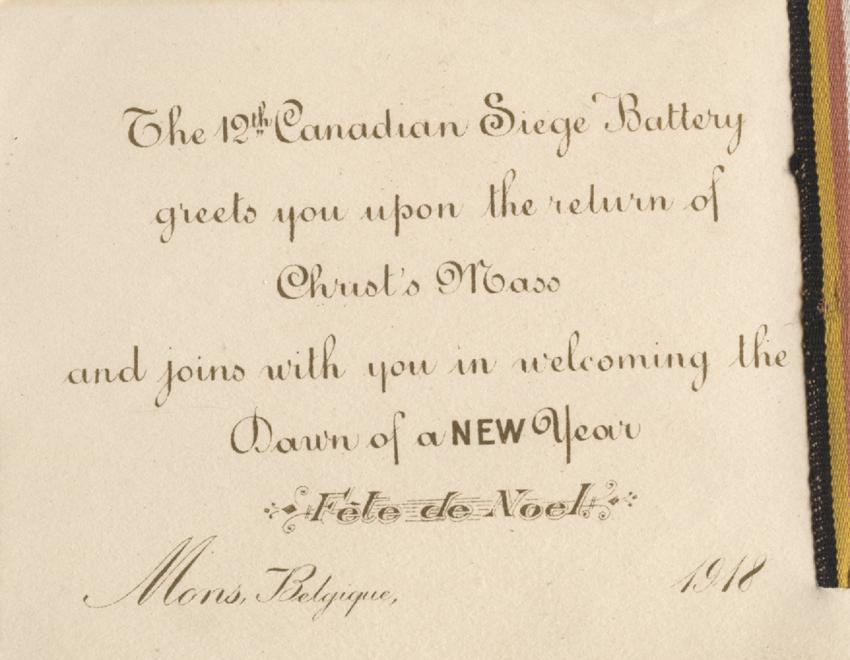 The 12th Canadian Siege Battery
greets you upon the return of
Christ's Mass
and joins with you in welcoming the
Dawn of a NEW Year
Fête de Noel.
Mons, Belgique, 1918